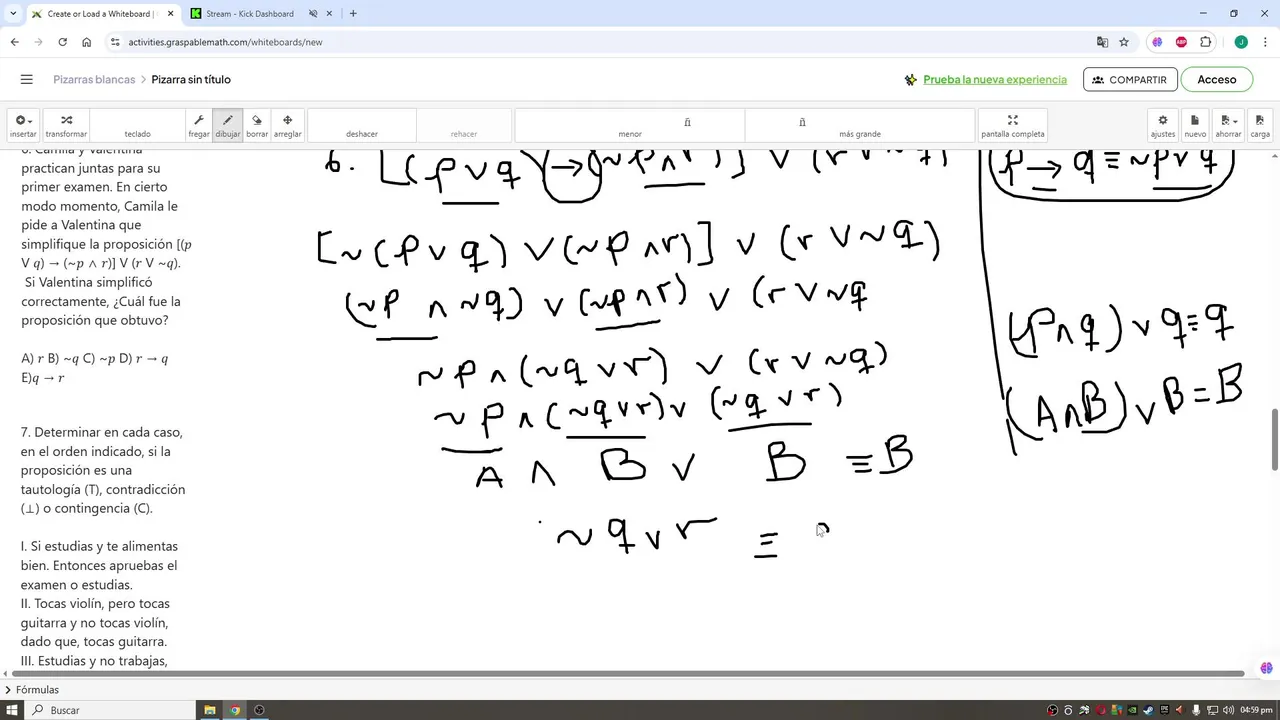 Create or Load a Whiteboard |
Stream - Kick Dashboard
activities.graspablemath.com/whiteboards/new
Pizarras blancas > Pizarra sin título
Prueba la nueva experiencia
COMPARTIR
Acceso
insertar transformar teclado fregar dibujar borrar arreglar deshacer rehacer menor más grande pantalla completa ajustes nuevo ahorrar carga
6. Camila y Valentina
practican juntas para su
primer examen. En cierto
modo momento, Camila le
pide a Valentina que
simplifique la proposición [(p
V q) → (~p ∧ r)] V (r V ~q).
Si Valentina simplificó
correctamente, ¿Cuál fue la
proposición que obtuvo?
A) r B) ~q C) ~p D) r → q
E)q → r
7. Determinar en cada caso,
en el orden indicado, si la
proposición es una
tautología (T), contradicción
(⊥) o contingencia (C).
I. Si estudias y te alimentas
bien. Entonces apruebas el
examen o estudias.
II. Tocas violín, pero tocas
guitarra y no tocas violín,
dado que, tocas guitarra.
III. Estudias y no trabajas,
6. [(p ∨ q) → (~p ∧ r)] ∨ (r ∨ ~q)
[~(p ∨ q) ∨ (~p ∧ r)] ∨ (r ∨ ~q)
(~p ∧ ~q) ∨ (~p ∧ r) ∨ (r ∨ ~q
~p ∧ (~q ∨ r) ∨ (r ∨ ~q)
~p ∧ (~q ∨ r) ∨ (~q ∨ r)
A ∧ B ∨ B ≡ B
~q ∨ r ≡
p → q ≡ ~p ∨ q
(p ∧ q) ∨ q ≡ q
(A ∧ B) ∨ B = B
Fórmulas
Buscar
04:59 pm